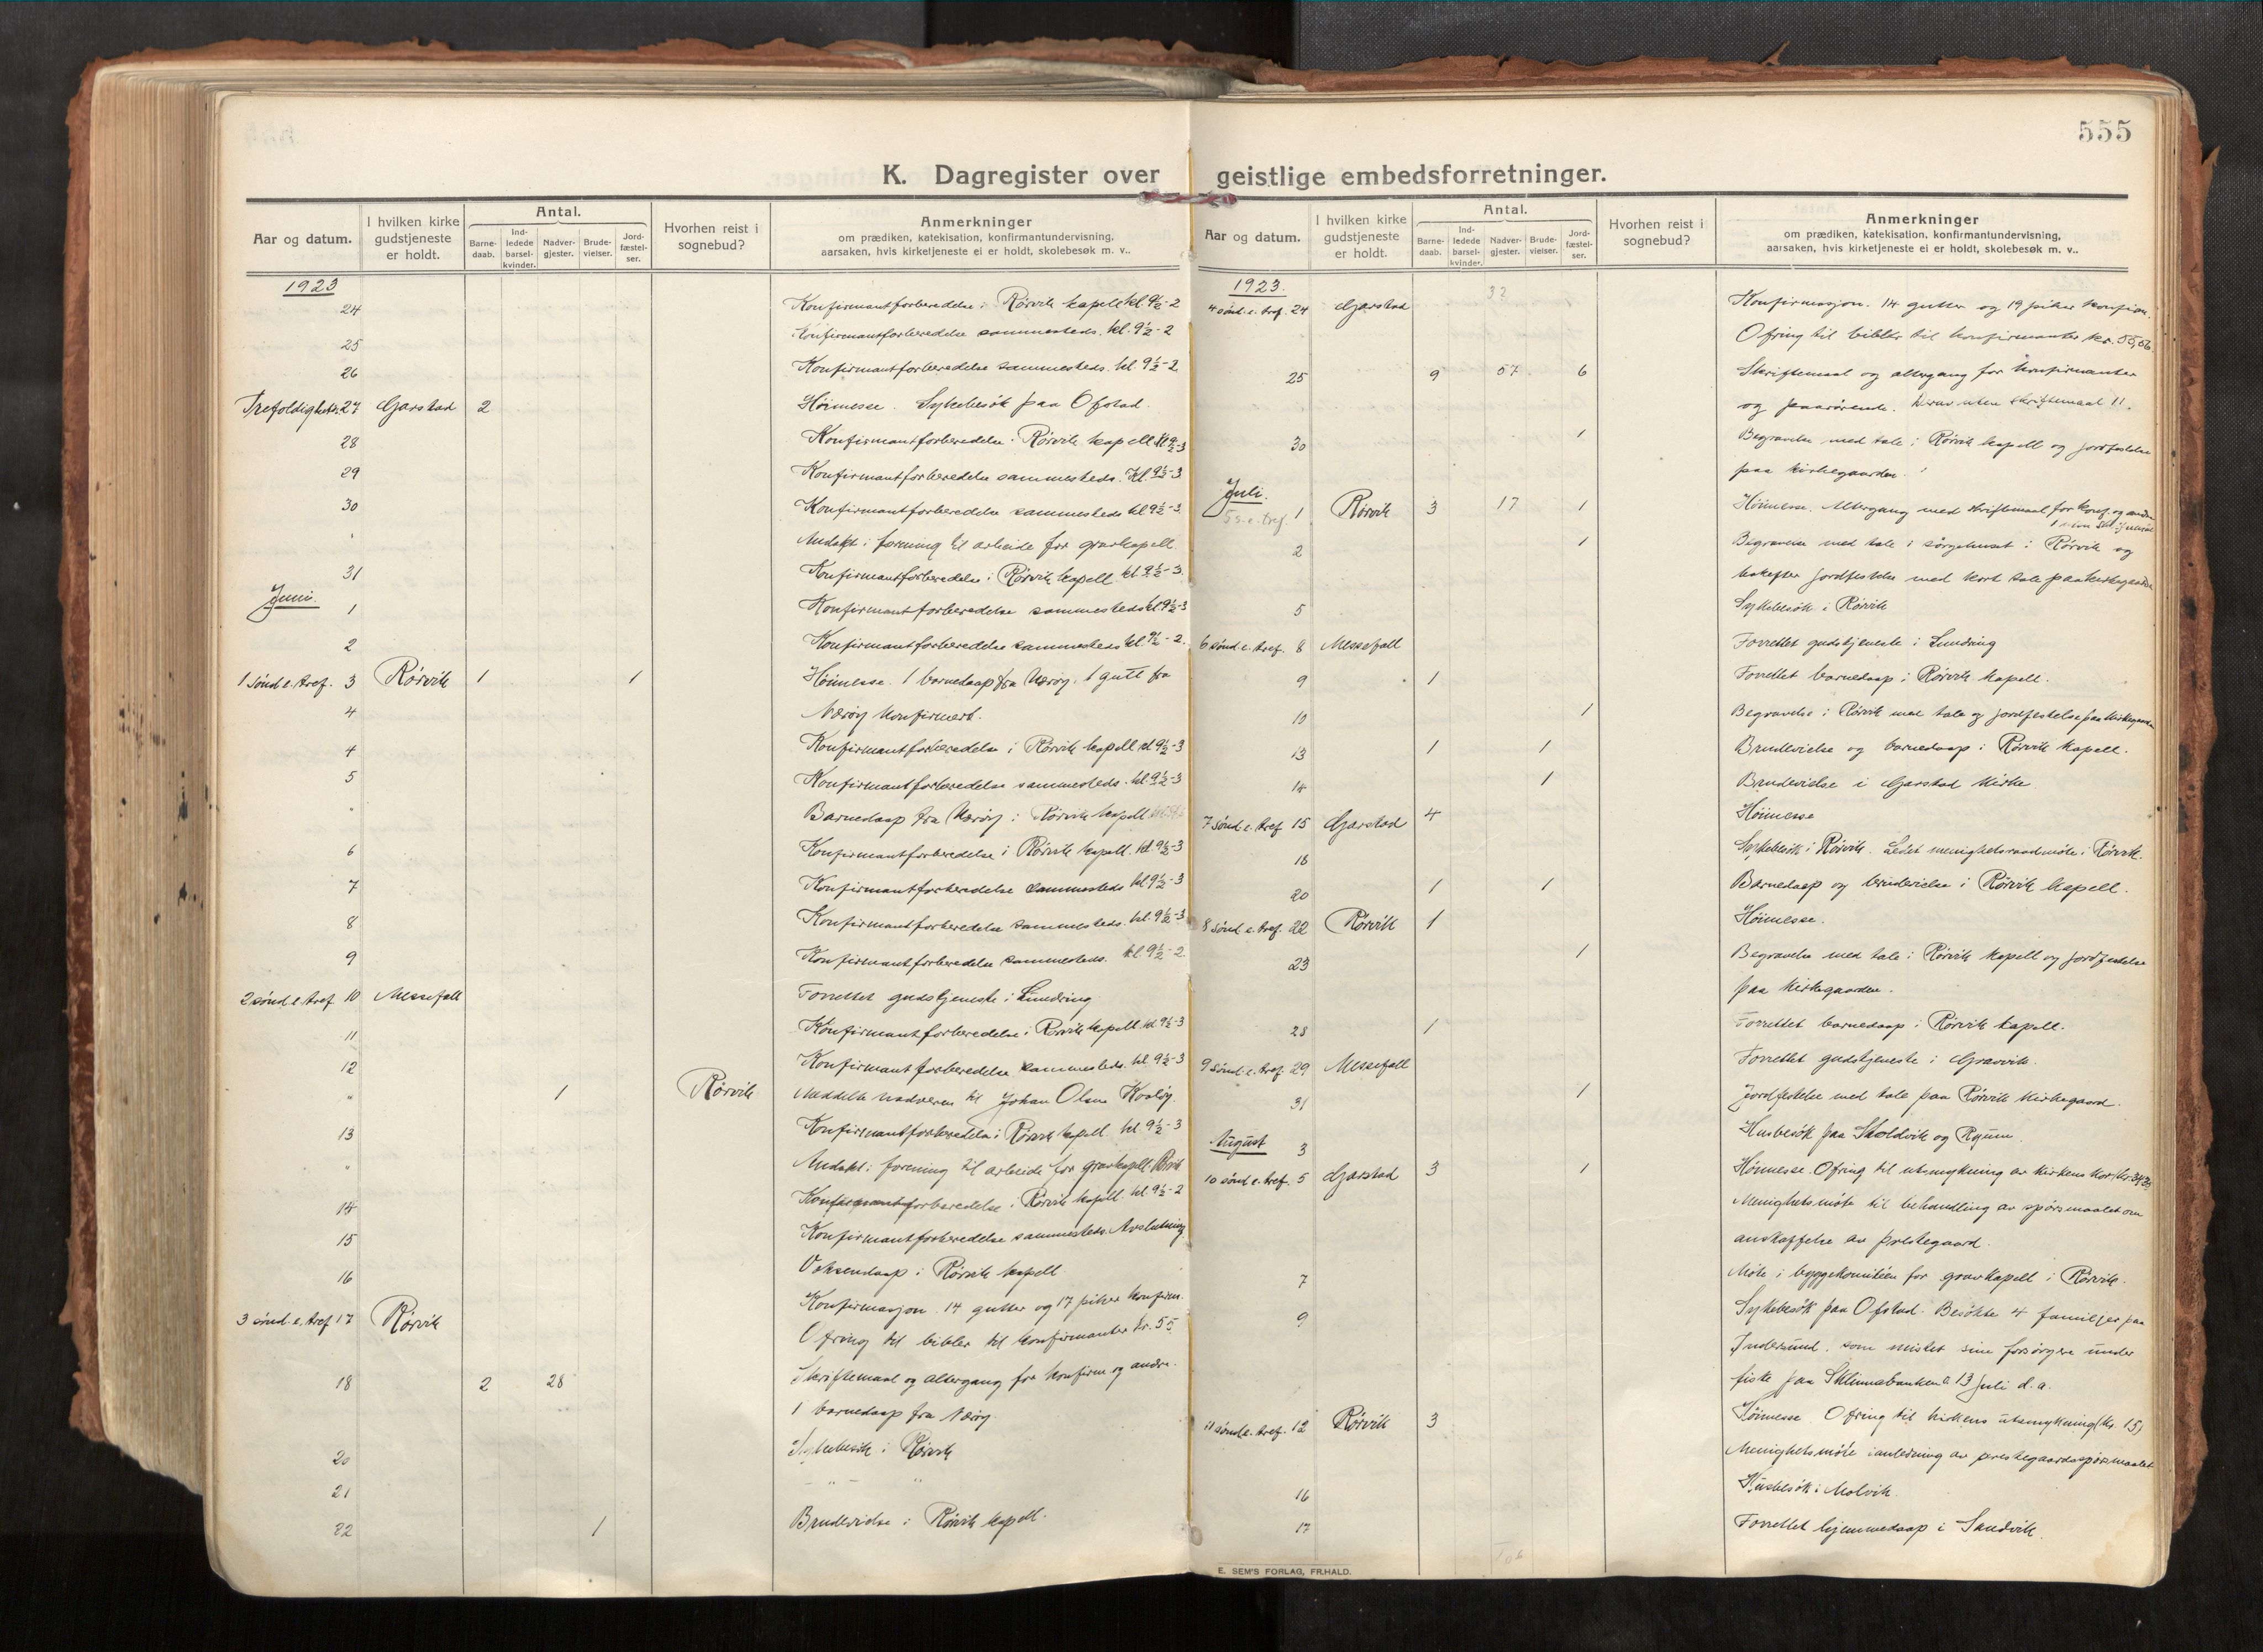 555
K. Dagregister over geistlige embedsforretninger.
Aar og datum.
I hvilken kirke gudstjeneste er holdt.
Antal.
Barne-daab.
Ind-ledede barsel-kvinder.
Nadver-gjester.
Brude-vielser.
Jord-fæstel-ser.
Hvorhen reist i sognebud?
Anmerkninger
om prædiken, katekisation, konfirmantundervisning,
aarsaken, hvis kirketjeneste ei er holdt, skolebesøk m. v..
1923
24 Konfirmantforberedelse i Rørvik kapell kl. 9½-2
25 Konfirmantforberedelse sammesteds. kl. 9½-2
26 Konfirmantforberedelse sammesteds. kl. 9½-2
Trefoldighets. 27 Garstad 2 Høimesse. Sykebesøk paa Ofstad.
28 Konfirmantforberedelse i Rørvik kapell kl 9½-3
29 Konfirmantforberedelse sammesteds. kl. 9½-3
30 Konfirmantforberedelse sammesteds kl 9½-3
" Andakt i forening til arbeide for gravkapell
31 Konfirmantforberedelse i Rørvik kapell kl 9½-3
Juni.
1 Konfirmantforberedelse sammesteds kl 9½-3
2 Konfirmantforberedelse sammesteds kl. 9½-2.
1 sønd e. tref. 3 Rørvik 1 1 Høimesse. 1 barnedaap fra Nærøy. 1 gutt fra
4 Nærøy konfirmert.
4 Konfirmantforberedelse i Rørvik kapell kl 9½-3
5 Konfirmantforberedelse sammesteds. kl 9½-3
" Barnedaap fra Nærøy i Rørvik kapell
6 Konfirmantforberedelse i Rørvik kapell. kl. 9½-3
7 Konfirmantforberedelse sammesteds kl 9½-3
8 Konfirmantforberedelse sammesteds. kl. 9½-3
9 Konfirmantforberedelse sammesteds. kl 9½-2
2 sønd e. tref. 10 Messefall Forrettet gudstjeneste i Lundring
11 Konfirmantforberedelse i Rørvik kapell kl 9½-3
12 Konfirmantforberedelse sammesteds. kl. 9½-3
" 1 Rørvik Meddelte nadveren til Johan Olsen
13 Konfirmantforberedelse i Rørvik kapell. kl 9½-3
" Andakt i forening til arbeide for gravkapell i Rørvik
14 Konfirmantforberedelse i Rørvik kapell. kl. 9½-2
15 Konfirmantforberedelse sammesteds. Avslutning
16 Voksendaap i Rørvik kapell
3 sønd. e. tref 17 Rørvik Konfirmasjon. 14 gutter og 17 piker konfirm.
Ofring til bibler til konfirmanter kr. 55
18 2 28 Skriftemaal og altergang for konfirm og andre.
1 barnedaap fra Nærøy.
20 Sykebesøk i Rørvik
21 - " - "
22 1 Brudevielse i Rørvik kapell.
Aar og datum.
I hvilken kirke gudstjeneste er holdt.
Antal.
Barne-daab.
Ind-ledede barsel-kvinder.
Nadver-gjester.
Brude-vielser.
Jord-fæstel-ser.
Hvorhen reist i sognebud?
Anmerkninger
om prædiken, katekisation, konfirmantundervisning,
aarsaken, hvis kirketjeneste ei er holdt, skolebesøk m. v..
1923.
4 sønd. e. tref. 24 Garstad Konfirmasjon. 14 gutter og 19 piker konfirm.
Ofring til bibler til konfirmanter kr. 55,06
25 9 57 6 Skriftemaal og altergang for konfirmanter
og paarørende. Derav uten skriftemaal 11.
30 1 Begravelse med tale i Rørvik kapell og jordfestelse
paa kirkegaarden.
Juli.
5 s. e. tref. 1 Rørvik 3 17 1 Høimesse. Altergang med skriftemaal for konf. og andre
2 1 Begravelse med tale i sørgehuset i Rørvik og
derefter jordfestelse med kort tale paa kirkegaarden
5 Sykebesøk i Rørvik
6 sønd. e. tref. 8 Messefall Forrettet gudstjeneste i Lundring
9 1 Forrettet barnedaap i Rørvik kapell.
10 1 Begravelse i Rørvik med tale og jordfestelse paa kirkegaarden
13 1 1 Brudevielse og barnedaap i Rørvik kapell.
14 1 Brudevielse i Garstad kirke
7 sønd. e. tref 15 Garstad 4 Høimesse
18 Sykebesøk i Rørvik. Ledet menighetsraadsmøte i Rørvik.
20 1 1 Barnedaap og brudevielse i Rørvik kapell.
8 sønd e. tref. 22 Rørvik 1 Høimesse.
23 1 Begravelse med tale i Rørvik kapell og jordfestelse
paa kirkegaarden.
28 1 Forrettet barnedaap i Rørvik kapell.
9 sønd. e. tref. 29 Messefall Forrettet gudstjeneste i Gravvik.
31 1 Jordfestelse med tale paa Rørvik kirkegaard.
August
3 Husbesøk paa og
10 sønd e. tref. 5 Garstad 3 1 Høimesse. Ofring til utsmykning av kirkens kor
Menighetsmøte til behandling av spørsmaalet om
anskaffelse av prestegaard.
7 Møte i byggekomitéen for gravkapell i Rørvik.
9 Sykebesøk paa Ofstad. Besøkte 4 familjer paa
Indersund, som mistet sine forsørgere under
fiske paa Sklinnabanken 13 juli d. a.
11 sønd e. tref. 12 Rørvik 3 Høimesse Ofring til kirkens utsmykning (kr. 15)
Menighetsmøte i anledning av prestegaardsspørsmaalet
16 Husbesøk i Molvik.
17 Forrettet hjemmedaap i Sandvik.
E. SEM'S FORLAG, FR.HALD.